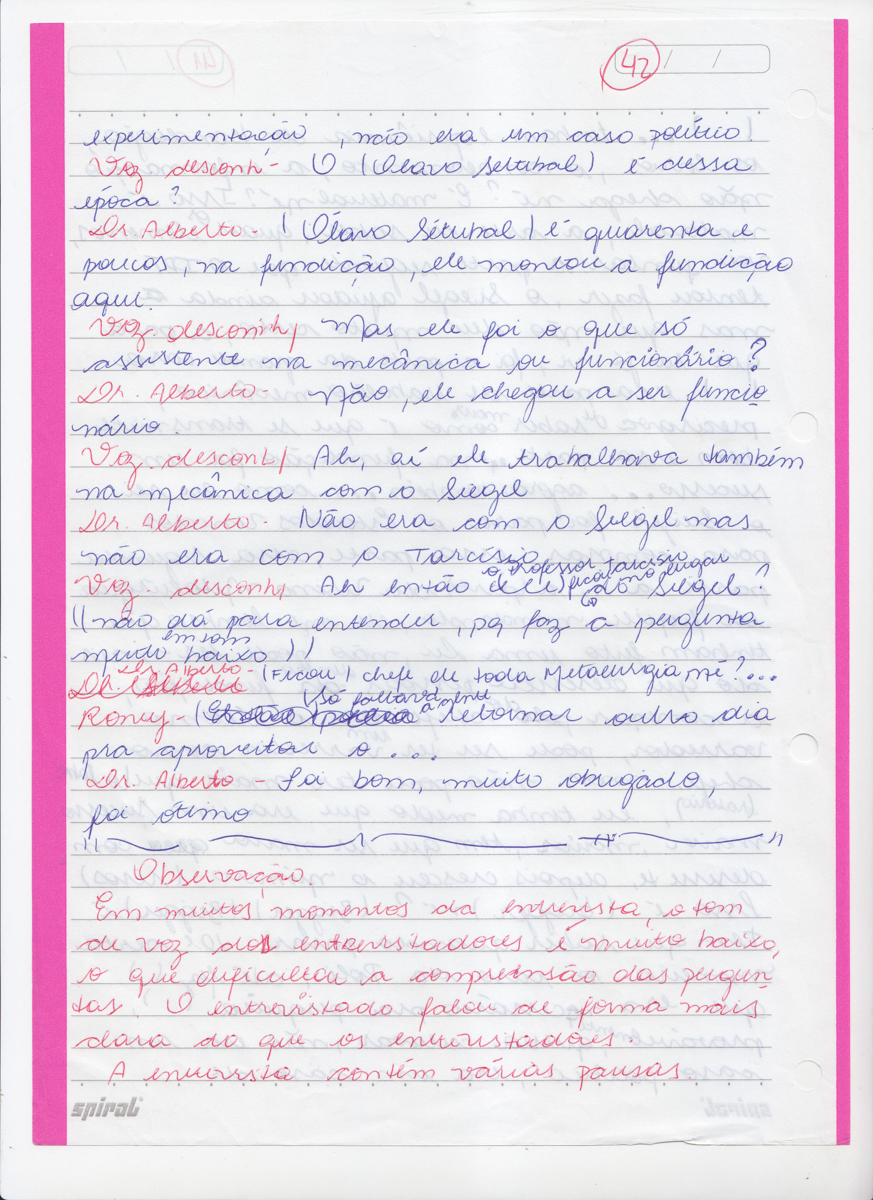 42 / /
experimentação, não era um caso político.
Voz desconh,- O (Olavo Setubal) é dessa
época?
Dr. Alberto - (Olavo Sétubal) é quarenta e
poucos, na fundição, ele montou a fundição
aqui.
Voz. desconh, Mas ele foi o que só
assistente na mecânica ou funcionário?
Dr. Alberto - Não, ele chegou a ser funcio
nário.
Voz. desconh, Ah, aí ele trabalhava também
na mecânica com o Siegel
Dr. Alberto - Não era com o Siegel mas
não era com o Tarcísio
o professor Tarcisio
Voz. desconh, Ah então (ele) ficou no lugar do Siegel?
((não dá para entender, pq faz a pergunta
em tom
muito baixo))
Dr. Alberto - (Ficou) chefe de toda Metalurgia né?...
Só faltava a gente
Roney - retornar outro dia
pra aproveitar o ...
Dr. Alberto - Foi bom, muito obrigado,
foi ótimo
Observação.
Em muitos momentos da entrevista, o tom
de voz dos entrevistadores é muito baixo,
o que dificultou a compreensão das pergun
tas. O entrevistado falou de forma mais
clara do que os entrevistadores.
A entrevista contém várias pausas.
spiral